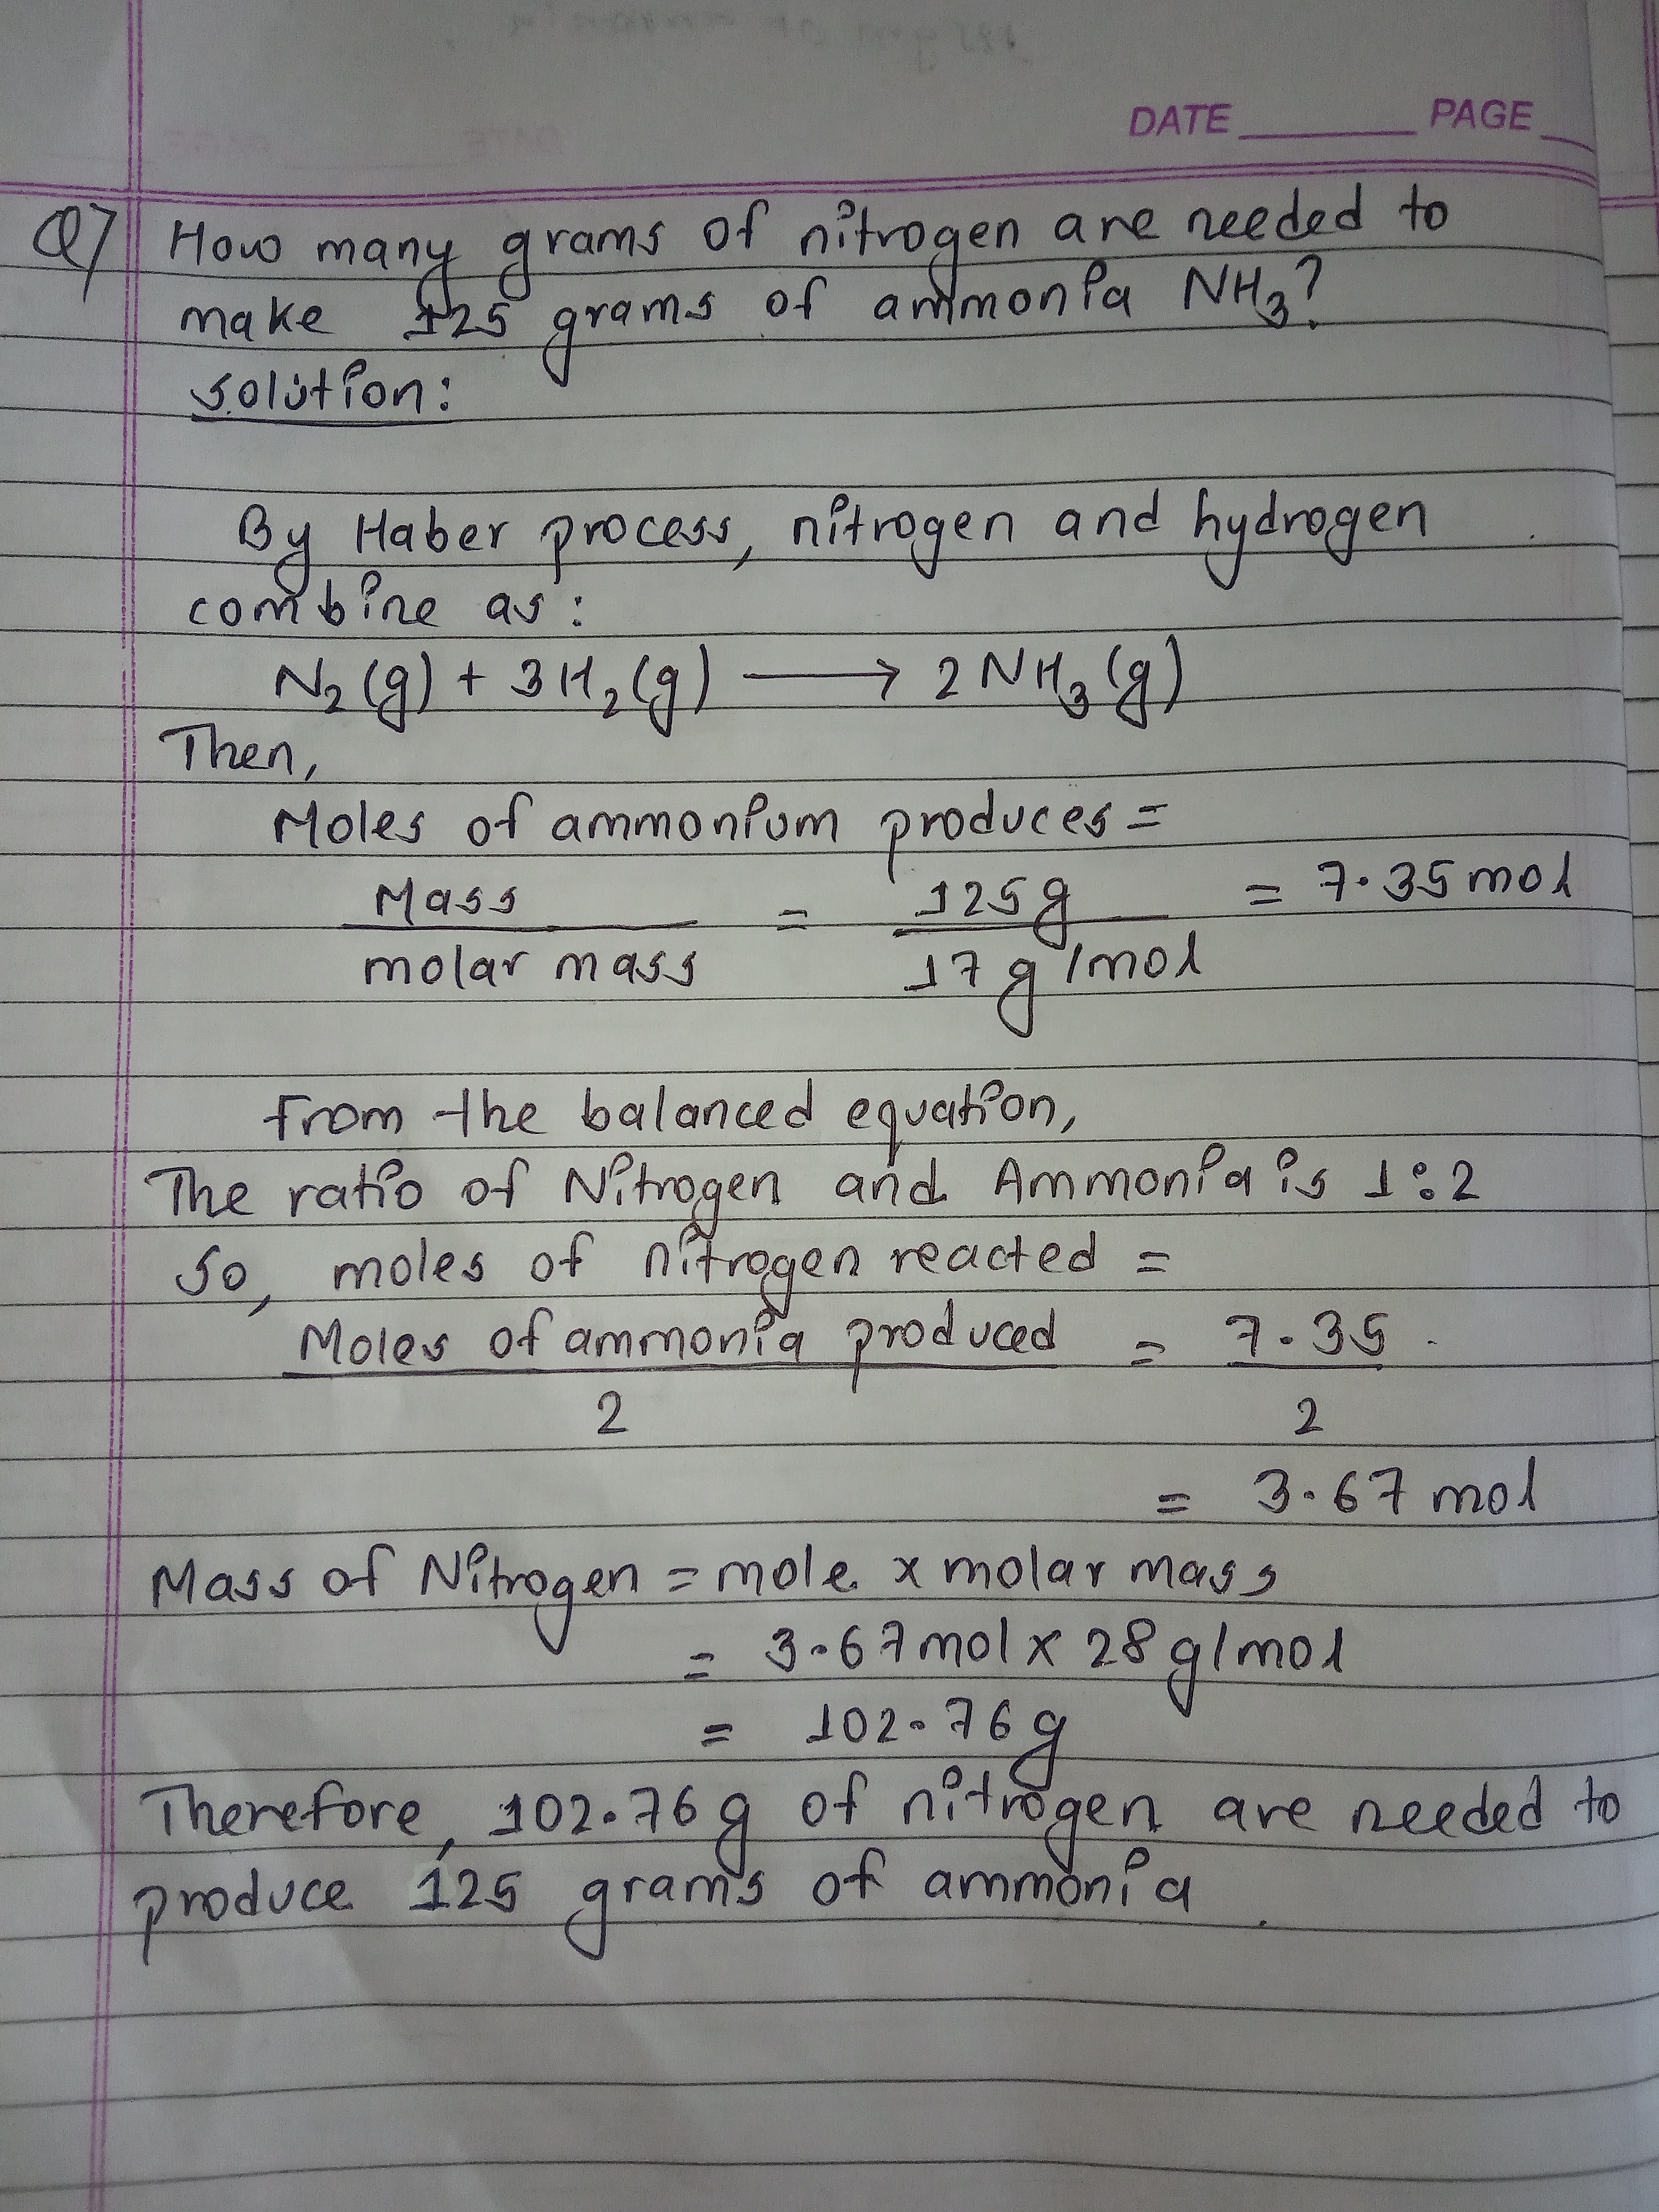 DATE PAGE
Q7 How many grams of nitrogen are needed to
make 125 grams of ammonia NH₃?
solution:
By Haber process, nitrogen and hydrogen
combine as:
N₂(g) + 3H₂(g) ⟶ 2NH₃(g)
Then,
Moles of ammonium produces =
Mass / molar mass = 125g / 17g/mol = 7.35 mol
From the balanced equation,
The ratio of Nitrogen and Ammonia is 1:2
So, moles of nitrogen reacted =
Moles of ammonia produced / 2 = 7.35 / 2
= 3.67 mol
Mass of Nitrogen = mole × molar mass
= 3.67 mol × 28 g/mol
= 102.76 g
Therefore, 102.76 g of nitrogen are needed to
produce 125 grams of ammonia.